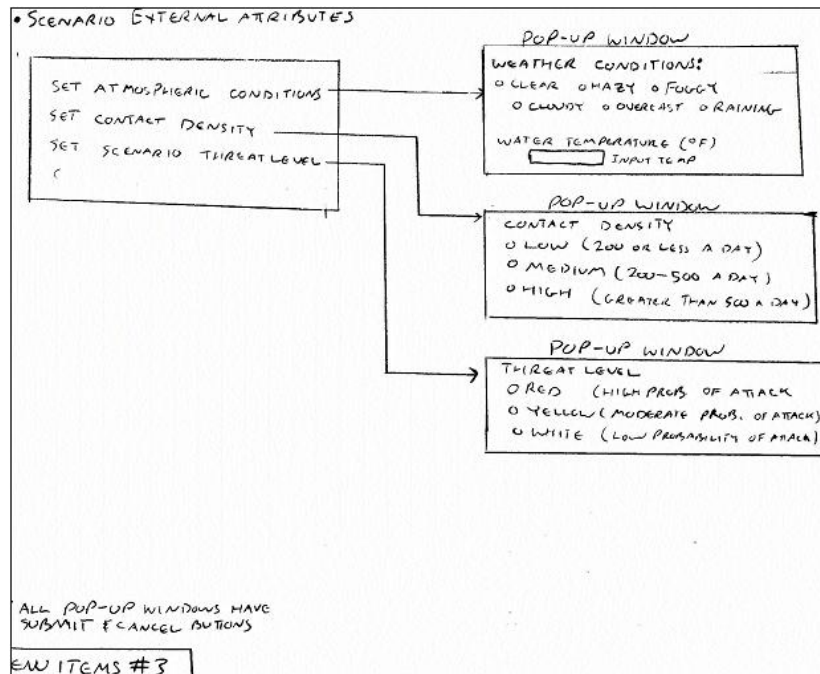 • SCENARIO EXTERNAL ATTRIBUTES
SET ATMOSPHERIC CONDITIONS
SET CONTACT DENSITY
SET SCENARIO THREAT LEVEL
POP-UP WINDOW
WEATHER CONDITIONS:
O CLEAR O HAZY O FOGGY
O CLOUDY O OVERCAST O RAINING
WATER TEMPERATURE (°F)
INPUT TEMP
POP-UP WINDOW
CONTACT DENSITY
O LOW (200 OR LESS A DAY)
O MEDIUM (200-500 A DAY)
O HIGH (GREATER THAN 500 A DAY)
POP-UP WINDOW
THREAT LEVEL
O RED (HIGH PROB. OF ATTACK
O YELLOW (MODERATE PROB. OF ATTACK)
O WHITE (LOW PROBABILITY OF ATTACK)
ALL POP-UP WINDOWS HAVE
SUBMIT & CANCEL BUTTONS
ITEMS #3